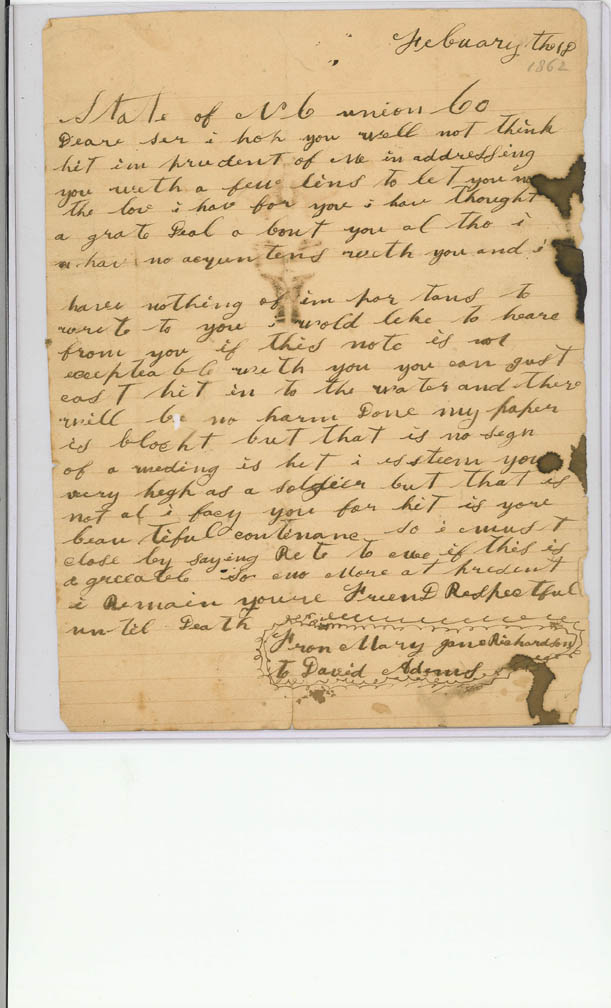 Febuary the 18
1862
State of N C union Co
Deare ser i hop you well not think
hit im prudent of Me in addressing
you weth a few lins to let you no
the love i hav for you i have thought
a grate Deal a bout you al tho i
hav no acquntens weth you and i
have nothing of im por tans to
wrete to you i wold like to heare
from you if this note is not
exceptable weth you you can gust
cast hit in to the water and there
will be no harm Done my paper
is blocht but that is no segn
of a weding is het i essteem you
very hegh as a soldier but that is
not al i facy you for hit is yore
beau tiful contenanc so i must
close by saying Rete to mee if this is
agreeable so no More at presdent
i Remain youre Friend Respectful
un til Death
From Mary jane Richardson
to David Adams